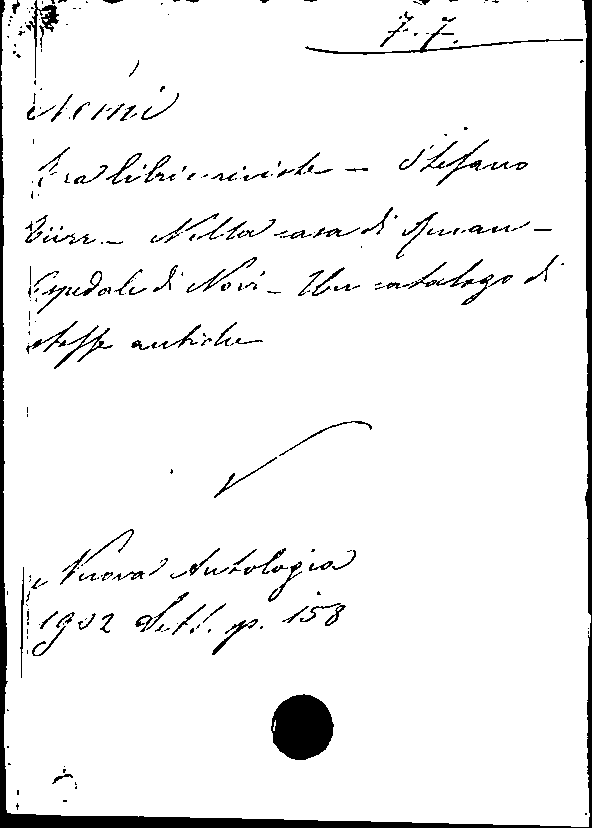 7.7.
Nemi
Tra libri e riviste - Stefano
Türr - Nella casa di
Ospedale di Novi - Un catalogo di
stoffe antiche
Nuova Antologia
1902 Sett. p. 158